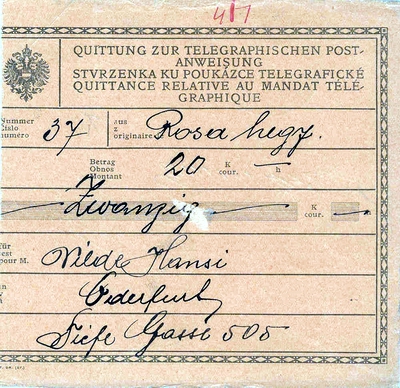 4/7
QUITTUNG ZUR TELEGRAPHISCHEN POST-
ANWEISUNG
STVRZENKA KU POUKÁZCE TELEGRAFICKÉ
QUITTANCE RELATIVE AU MANDAT TÉLÉ-
GRAPHIQUE
Nummer
Číslo
numéro
37
aus
z
originaire
Rosahegy.
Betrag
Obnos
Montant
20 K
cour. — h
Zwanzig K
cour. —
für
pour M.
Vilde Hansi
Oderfurt
Tiefe Gasse 505